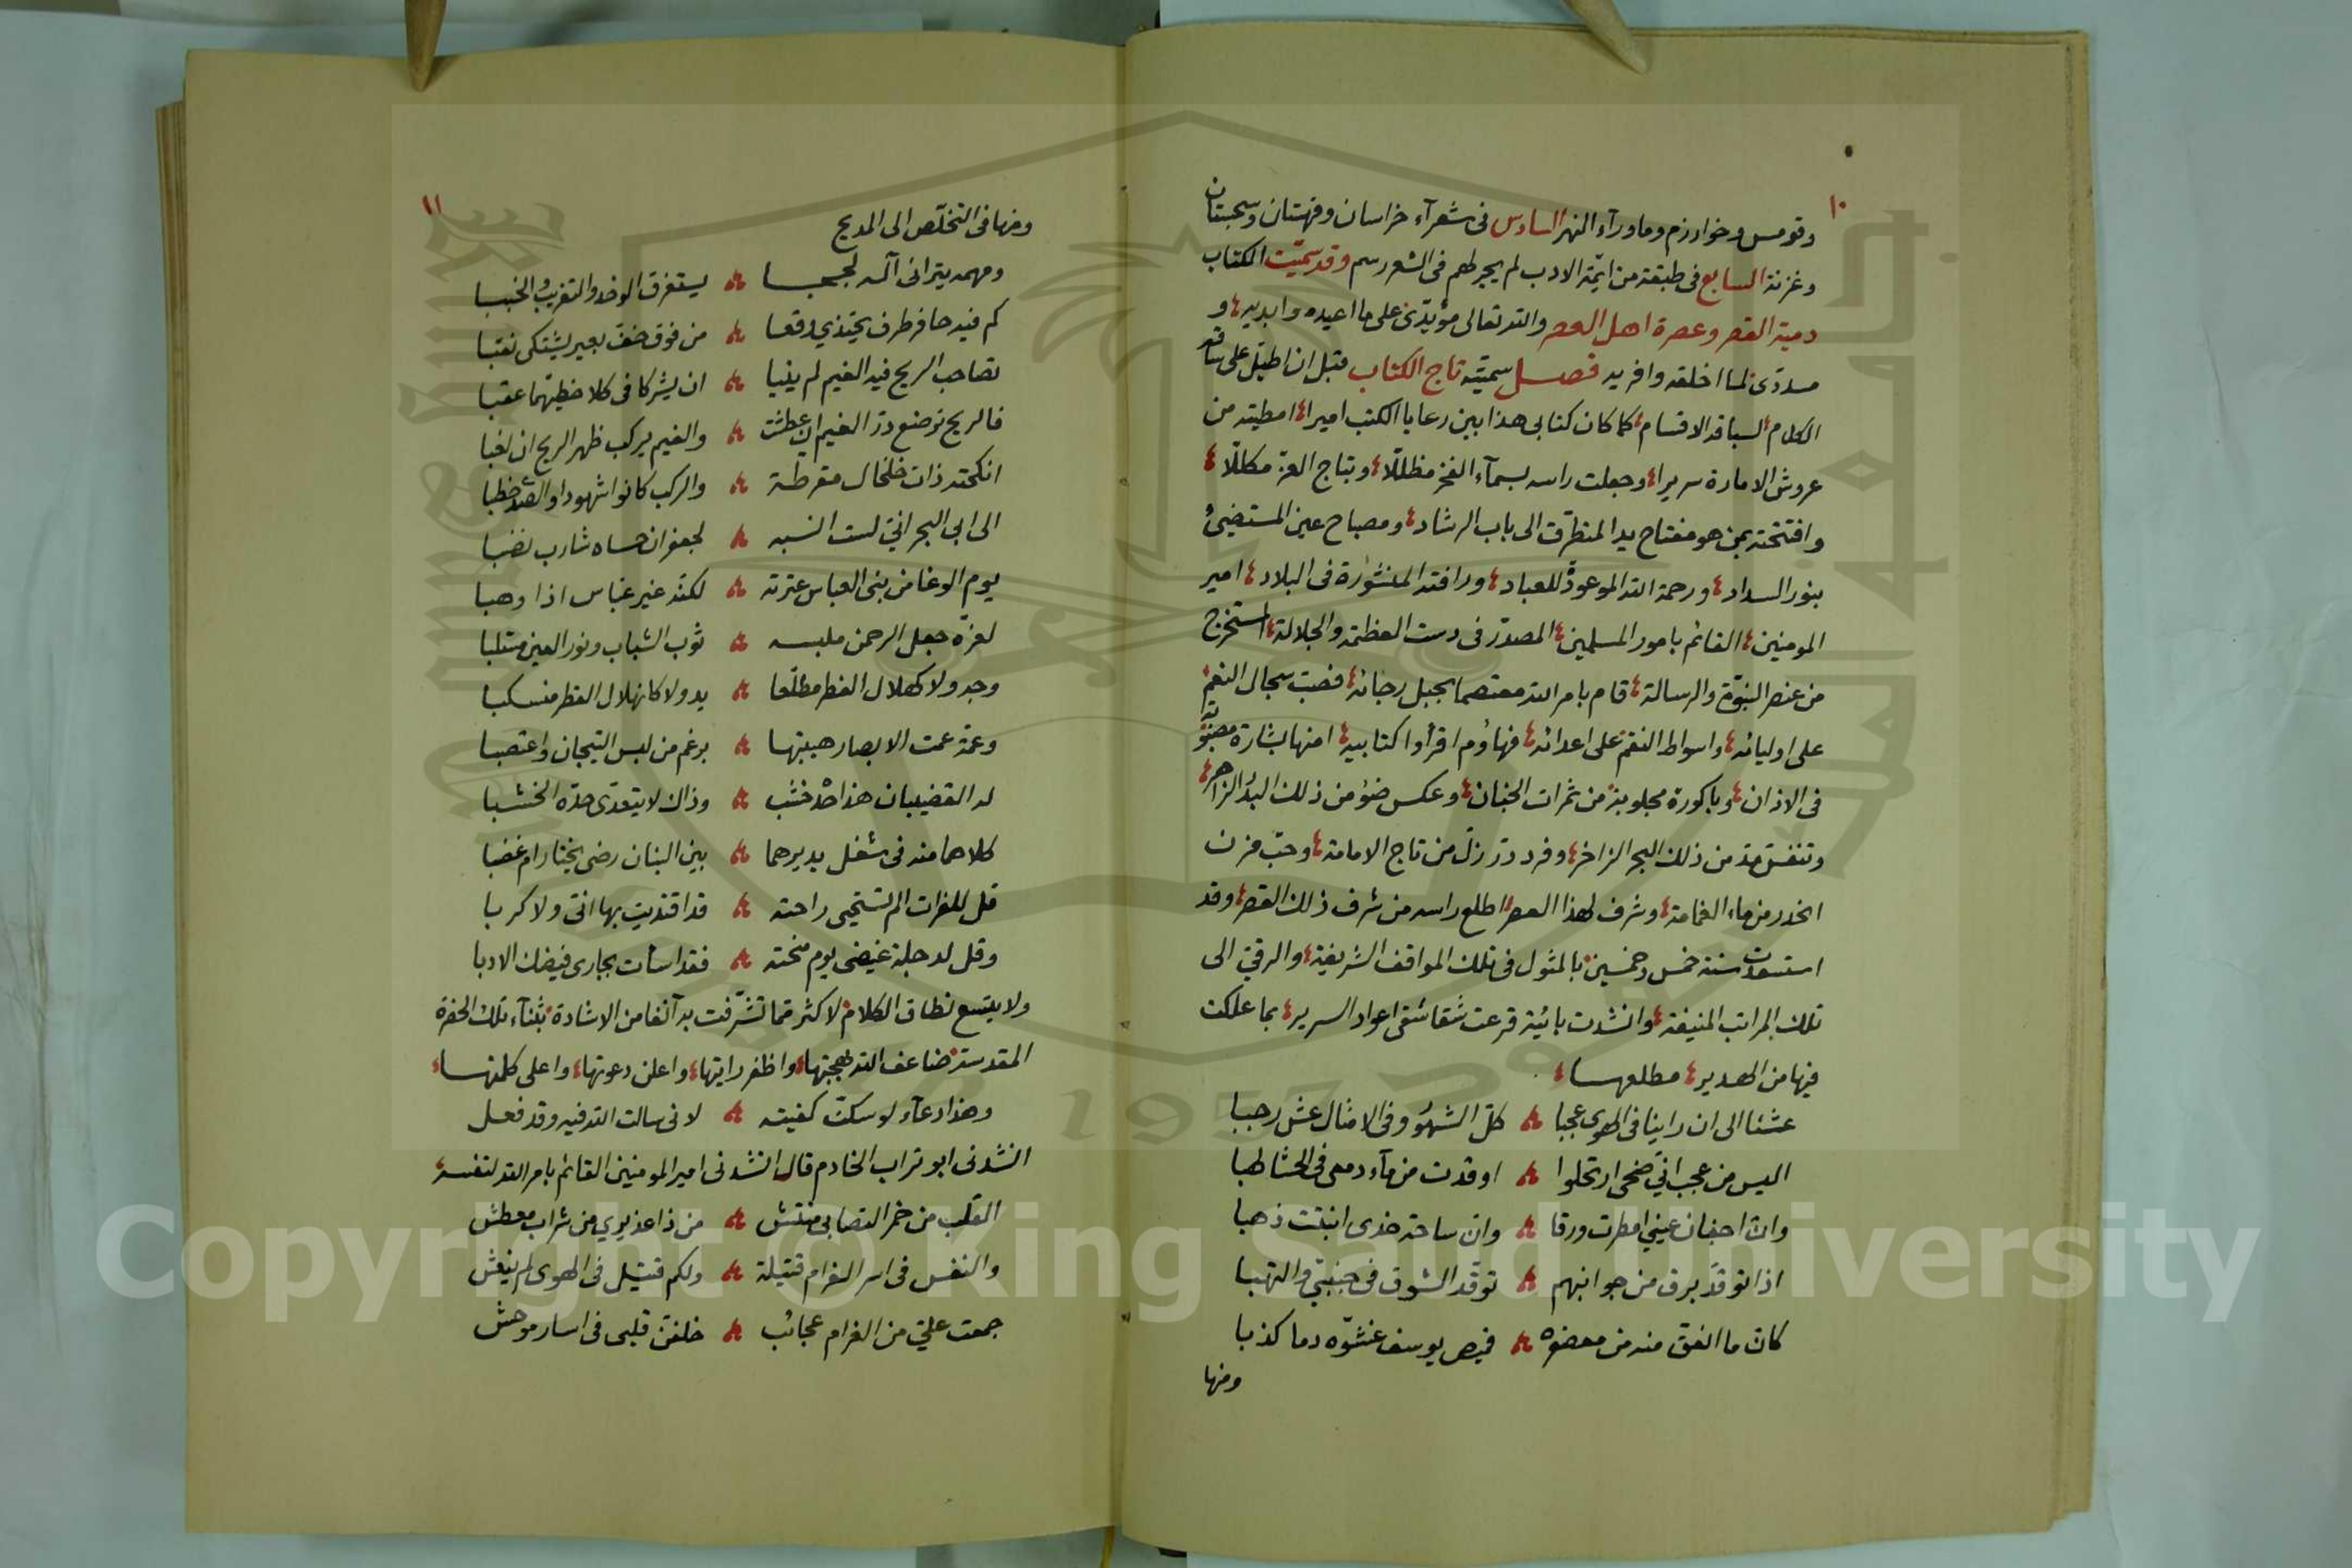 ١٠
وقومس وخوارزم وماورآء النهر السادس فى شعرآء خراسان وقهستان وسجستان
وغزنة السابع فى طبقة من ايمّة الادب لم يجر لهم فى الشعر رسم وقد سمّيت الكتاب
دمية القصر وعصرة اهل العصر والله تعالى مؤيّدى على ما اعيده وابديه و
مسدّدى لما اخلقه وافريه فصل سمّيته تاج الكتاب قبل ان اطيل على ساقة
الكلام لسباقة الاقسام كما كان كتابى هذا بين رعايا الكتب اميرا امطيته من
عروش الامارة سريرا وجعلت راسه بسمآء الفخر مظللّا وبتاج العز مكللّا
وافتتحته بمن هو مفتاح يد المتطرّق الى باب الرشاد ومصباح عين المستضيئ
بنور السداد ورحمة الله الموعودة للعباد ورافته المنشورة فى البلاد امير
المومنين القائم بامور المسلمين المصدّر فى دست العظمة والجلالة المستخرج
من عنصر النبوّة والرسالة قام بامر الله معتصما بحبل رجائه فصبّ سجال النعم
على اوليائه واسواط النقم على اعدائه فهاؤم اقرأوا كتابيه امنها بشارة مصبوبة
فى الاذان وباكورة مجلوبة من ثمرات الجنان وعكس ضوء من ذلك البدر الزاهر
وتنفس مد من ذلك البحر الزاخر وفرد در زلّ من تاج الامامة وحبّ مزن
انحدر من ماء الغمامة وشرف لهذا العصر اطلع راسه من شرف ذلك القصر وقد
استسعدت سنة خمس وخمسين بالمثول فى تلك المواقف الشريفة والرقيّ الى
تلك المراتب المنيفة وانشدت بائية قرعت شقاشقى اعواد السرير بما علكت
فيها من الهدير مطلعها
عشنا الى ان راينا فى الهوى عجبا كلّ الشهور وفى الامثال عش رجبا
اليس من عجب انّي ضحى ارتحلوا اوقدت من مآء دمعى فى الحشا لهبا
وانّ اجفان عيني امطرت ورقا وان ساحة خدى انبتت ذهبا
اذا توقدّ برق من جوانبهم توقّد الشوق فى جنبيّ والتهبا
كان ما انعقّ منه من معصفره قميص يوسف غشّوه دما كذبا
ومنها
١١
ومنها فى التخلّص الى المديح
ومهمه يترائى آله لججا يستغرق الوخد والتقريب والخببا
كم فيه حافر طرف يحتذي وقعا من فوق خفّ بعير يشتكى نقبا
تصاحب الريح فيه الغيم لم ينيا ان يشركا فى كلا خطيهما عقبا
فالريح ترضع درّ الغيم ان عطشت والغيم يركب ظهر الريح ان لغبا
انكحته ذات خلخال مقرطة والركب كانوا شهودا والصدى خطبا
الى ابى البحر انّي لست انسبه لجعفر ان حساه شارب نضبا
يوم الوغا من بنى العباس عترته لكنّه غير عبّاس اذا وهبا
لعزّه جعل الرحمن ملبسه ثوب الشباب ونور العين مستلبا
وجه ولا كهلال الفطر مطلّعا يد ولا كانهلال القطر منسكبا
وعمّة عمت الابصار هيبتها برغم من لبس التيجان واعتصبا
له القضيبان هذا حدّ خشب وذاك لا يتعدّى حدّه الخشبا
كلاهما منه فى شغل يديرهما بين البنان رضى يختار ام غضبا
قل للفرات الم تستحيى راحته قد اقتديت بها انّى ولا كربا
وقل لدجلة غيضى يوم منحته فقد اسأت بجارى فيضك الادبا
ولا يتسع نطاق الكلام لاكثر مما تشرّفت به آنفا من الاشادة بثنآء تلك الحضرة
المقدسة ضاعف الله بهجتها واظفر رايتها واعلن دعوتها واعلى كلمتها
وهذا دعآء لو سكتّ كفيته لانى سالت الله فيه وقد فعل
انشدنى ابو تراب الخادم قال انشدنى امير المومنين القائم بامر الله لنفسه
القلب من خمر التصابى منتش من ذا عذيري من شراب معطش
والنفس فى اسر الغرام قتيلة ولكم قتيل فى الهوى لم ينعش
جمعت عليّ من الغرام عجائب خلفن قلبى فى اسار موحش
Copyright © King Saud University
1957